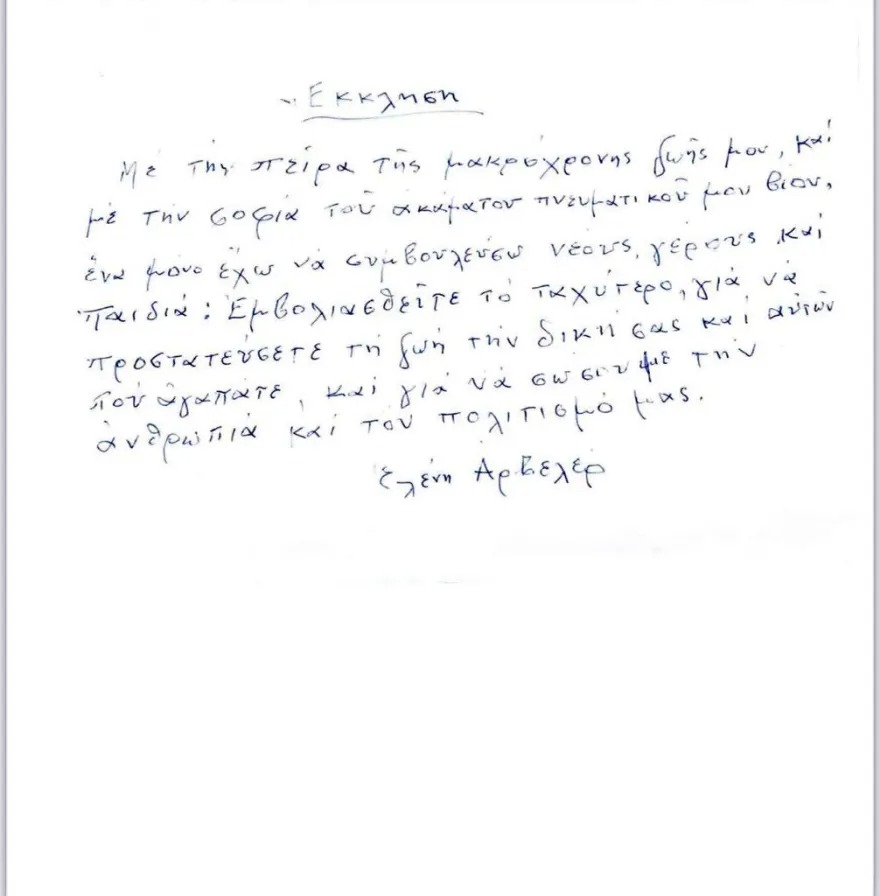 Έκκληση
Μέ τήν πείρα τῆς μακρόχρονης ζωῆς μου, καί
μέ τήν σοφία τοῦ ἀκάματου πνευματικοῦ μου βίου,
ἕνα μόνο ἔχω νά συμβουλεύσω νέους, γέρους καί
παιδιά: Ἐμβολιασθεῖτε τό ταχύτερο, γιά νά
προστατεύσετε τή ζωή τήν δική σας καί αὐτῶν
πού ἀγαπᾶτε, καί γιά νά σώσουμε τήν
ἀνθρωπιά καί τόν πολιτισμό μας.
Ἑλένη Ἀρβελέρ